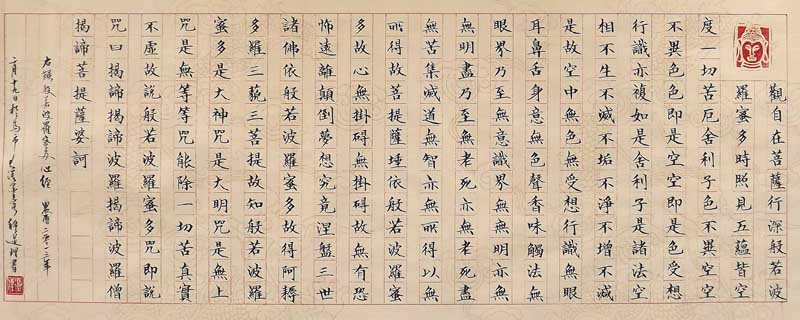 觀自在菩薩行深般若波
羅蜜多時照見五蘊皆空
度一切苦厄舍利子色不異空空
不異色色即是空空即是色受想
行識亦複如是舍利子是諸法空
相不生不滅不垢不淨不增不減
是故空中無色無受想行識無眼
耳鼻舌身意無色聲香味觸法無
眼界乃至無意識界無無明亦無
無明盡乃至無老死亦無老死盡
無苦集滅道無智亦無所得以無
所得故菩提薩埵依般若波羅蜜
多故心無掛礙無掛礙故無有恐
怖遠離顛倒夢想究竟涅盤三世
諸佛依般若波羅蜜多故得阿耨
多羅三藐三菩提故知般若波羅
蜜多是大神咒是大明咒是無上
咒是無等等咒能除一切苦真實
不虛故說般若波羅蜜多咒即說
咒曰揭諦揭諦波羅揭諦波羅僧
揭諦菩提薩婆訶
右錄般若波羅蜜多心經 二零一三年